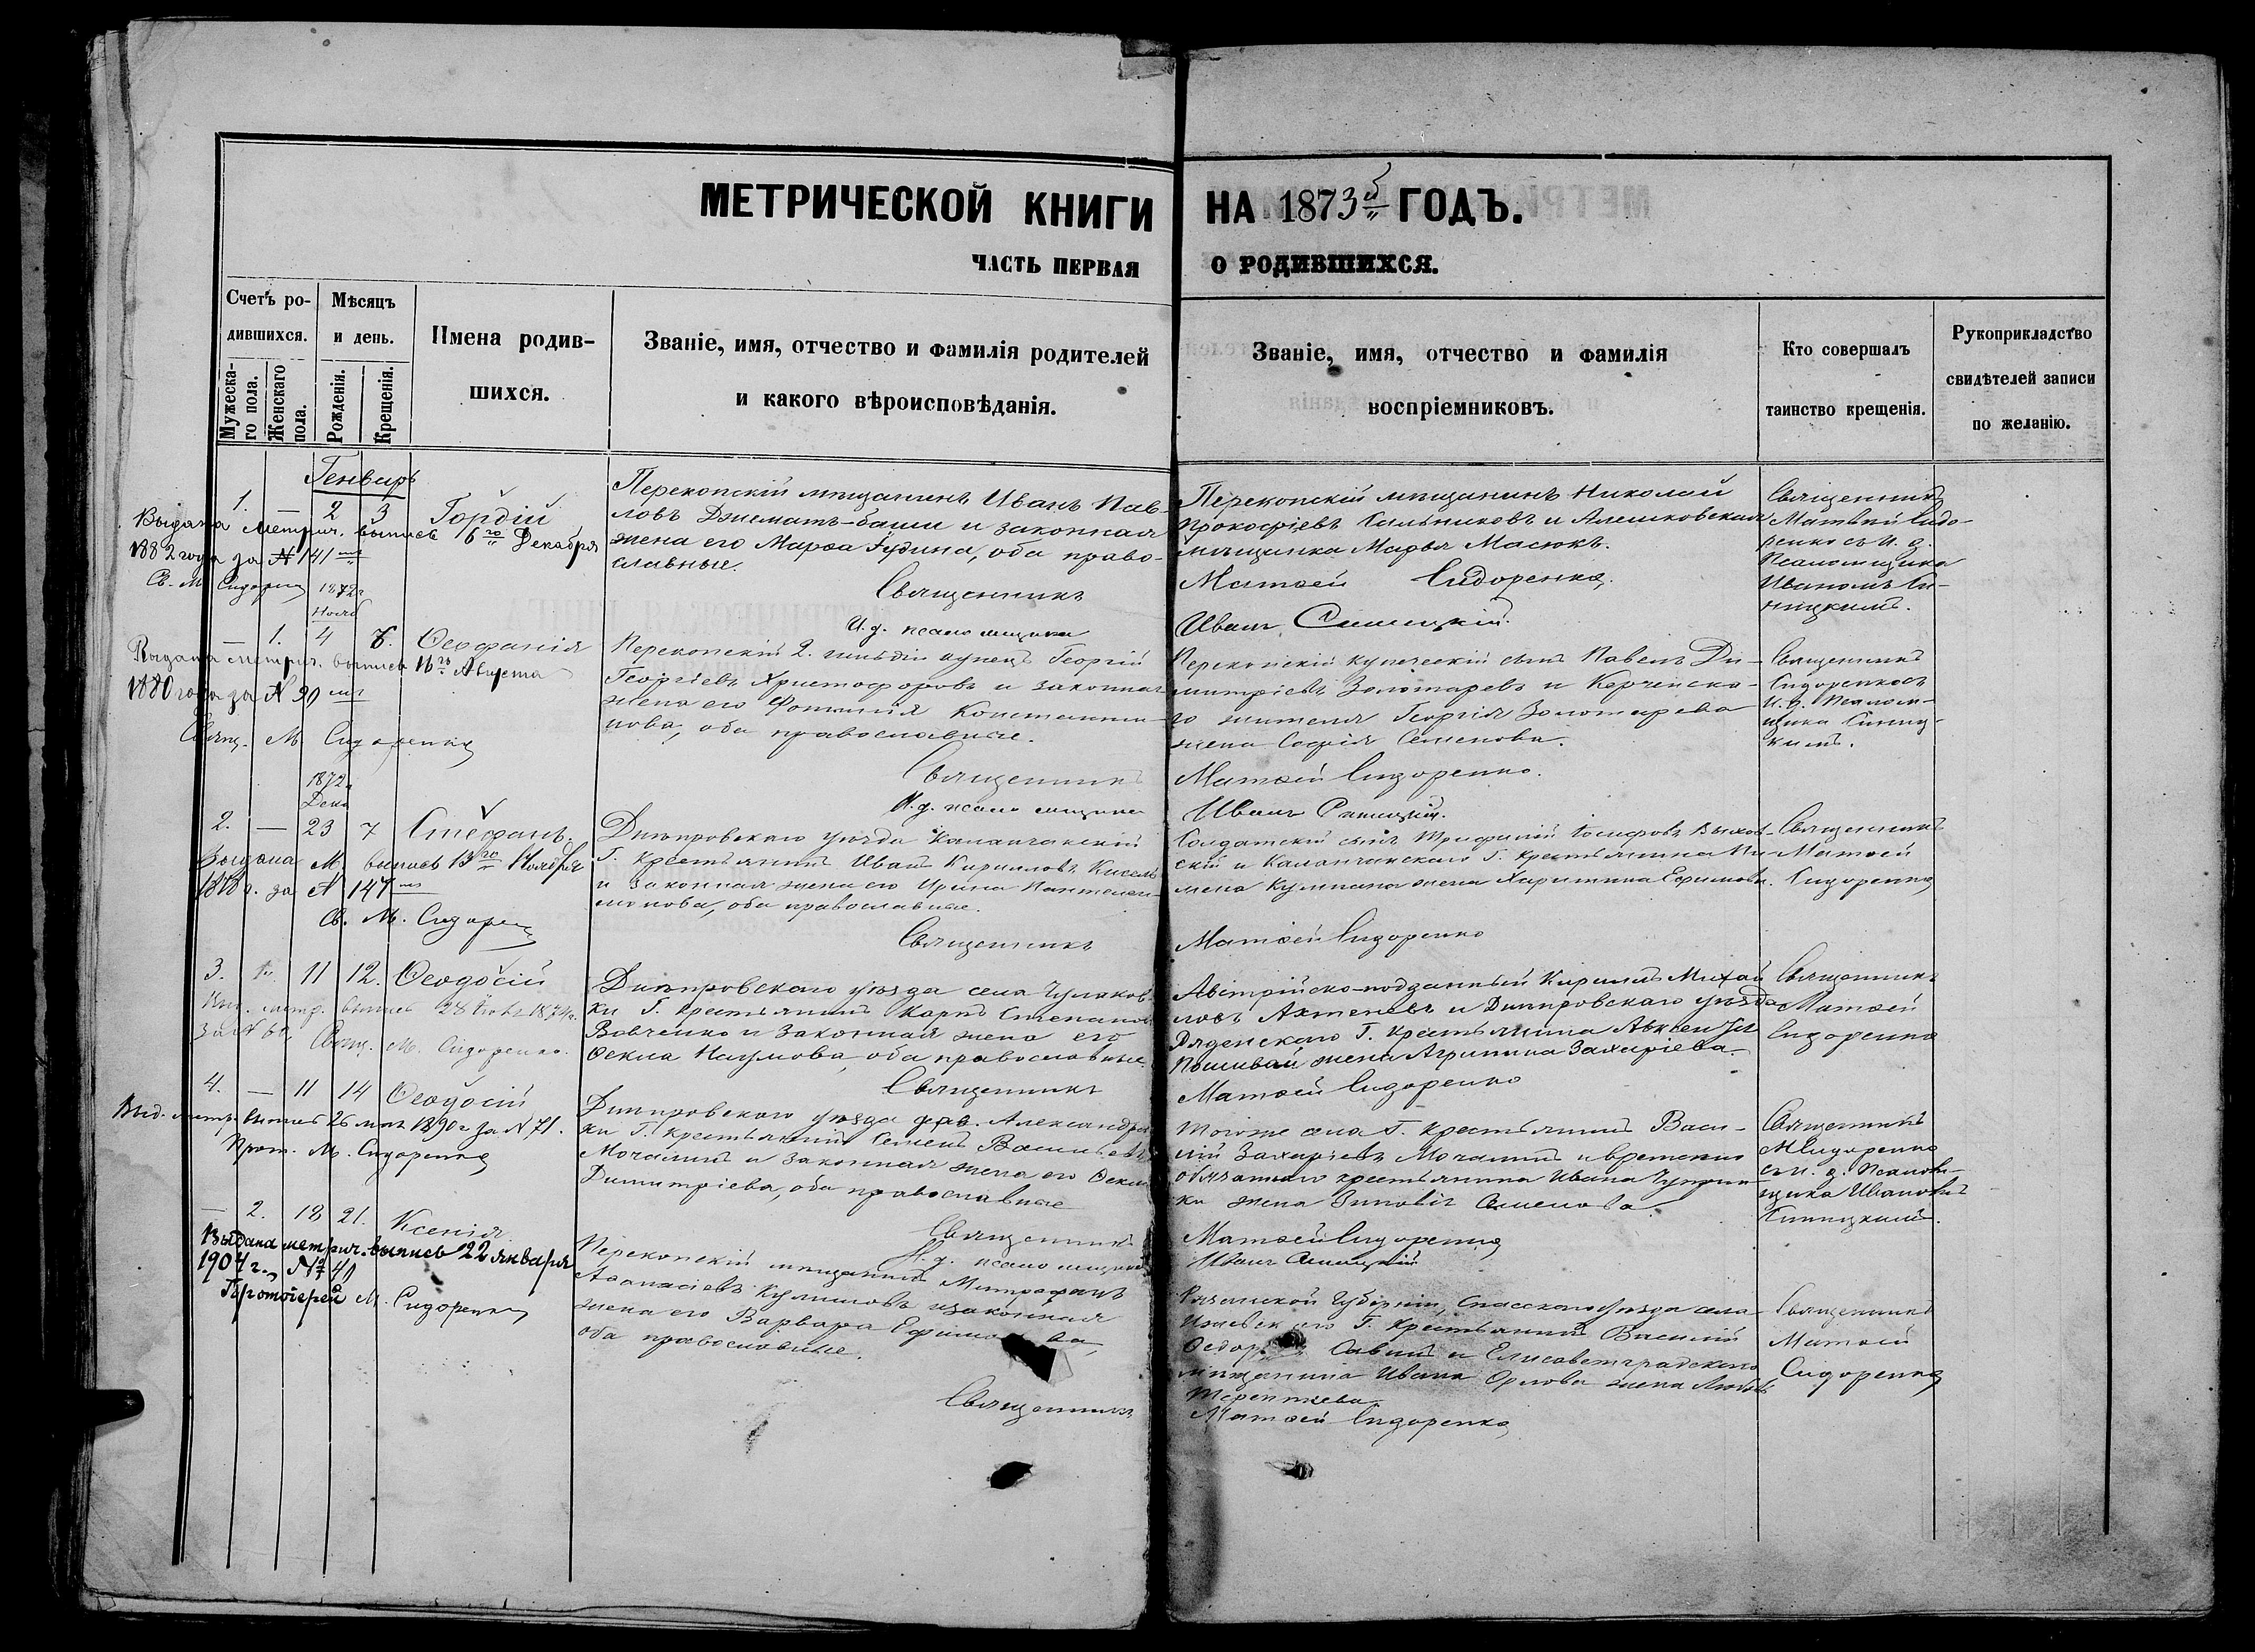 МЕТРИЧЕСКОЙ КНИГИ НА 1873й ГОДЪ.
ЧАСТЬ ПЕРВАЯ О РОДИВШИХСЯ.
Счетъ ро-
дившихся.
Мужеска-
го пола.
Женскаго
пола.
Мѣсяцъ
и день.
Рожденія.
Крещенія.
Имена родив-
шихся.
Званіе, имя, отчество и фамилія родителей
и какого вѣроисповѣданія.
Званіе, имя, отчество и фамилія
воспріемниковъ.
Кто совершалъ
таинство крещенія.
Рукоприкладство
свидѣтелей записи
по желанію.
Генварь
1. — 2 3 Гордій
Выдана метрич. выпись 6го Декабря
1882 года за № 141
Св. М. Сидоренко
Перекопскій мѣщанинъ Иванъ Пав-
ловъ и законная
жена его Марѳа, оба право-
славные.
Священникъ
И. д. псаломщика
Перекопскій мѣщанинъ Николай
Прокофіевъ Сальниковъ и Алешковская
мѣщанка Марья Масюкъ.
Матѳей Сидоренко.
Иванъ Синицкій.
Священникъ
Матѳей Сидо-
ренко съ и. д.
Псаломщика
Иваномъ Си-
ницкимъ.
1872
Нояб
— 1. 4 6. Ѳеофанія
Выдана метрич. выпись 16го Августа
1880 года за № 90
Свящ. М. Сидоренко
Перекопскій 2. гильдіи купецъ Георгій
Георгіевъ Христофоровъ и законная
жена его Фотинія Константи-
нова, оба православные.
Священникъ
И. д. псаломщика
Перекопскій купеческій сынъ Павелъ Ди-
митріевъ Золотаревъ и Керченска-
го жителя Георгія Золотарева
жена Софія Семенова.
Матѳей Сидоренко.
Иванъ Синицкій.
Священникъ
Сидоренко съ
И. д. Псалом-
щика Синиц-
кимъ.
1872
Дека
2. — 23 7 Стефанъ.
Выдана М. выпись 13го Ноября
за № 147
Св. М. Сидоренко
Днѣпровскаго уѣзда Каланчакскій
Г. крестьянинъ Иванъ Кириловъ Кисель
и законная жена его Ирина Пантелеи-
монова, оба православные.
Священникъ
Солдатскій сынъ Трифилій Іосифовъ
и Каланчакскаго Г. крестьянина
жена Харитина Ефимова.
Матѳей Сидоренко
Священникъ
Матѳей
Сидоренко
3. 11 12. Ѳеодосій
Выд. метр. выпись 28
Свящ. М. Сидоренко.
Днѣпровскаго уѣзда села Чулаков-
ки Г. крестьянинъ Карпъ Степановъ
Вовченко и законная жена его
Ѳекла Наумова, оба православные.
Священникъ
Австрійско-подданный Кирилъ Михай
ловъ и Днѣпровскаго уѣзда
Г. крестьянина
жена Агрипина Захаріева.
Матѳей Сидоренко
Священникъ
Матѳей
Сидоренко
4. — 11 14 Ѳеодосій
Выд. метр. выпись 26 мая 1890 г за № 71.
Прот. М. Сидоренко
Днѣпровскаго уѣзда дер. Александров
ки Г. крестьянинъ Семенъ Васильевъ
Мочалинъ и законная жена его Ѳекла
Димитріева, оба православные
Священникъ
И. д. псаломщика
Тогоже села Г. крестьянинъ Васи-
лій Захарьевъ Мочалинъ и временно
обязаннаго крестьянина Ивана
жена Зиновія Семенова.
Матѳей Сидоренко
Иванъ Синицкій
Священникъ
М Сидоренко
съ и. д. Псалом-
щика Иваномъ
Синицкимъ.
— 2. 18 21. Ксенія.
Выдана метрич. выпись 22 января
1904 г., № 40
Протоіерей М. Сидоренко
Перекопскій мѣщанинъ Митрофанъ
Аѳанасіевъ Куликовъ и законная
жена его Варвара Ефимова,
оба православные.
Священникъ
Рязанской Губерніи, Спасскаго уѣзда села
Г. крестьянинъ Василій
Савинъ и Елисаветградскаго
мѣщанина Ивана Орлова жена Любовь
Терентіева.
Матѳей Сидоренко
Священникъ
Матѳей
Сидоренко